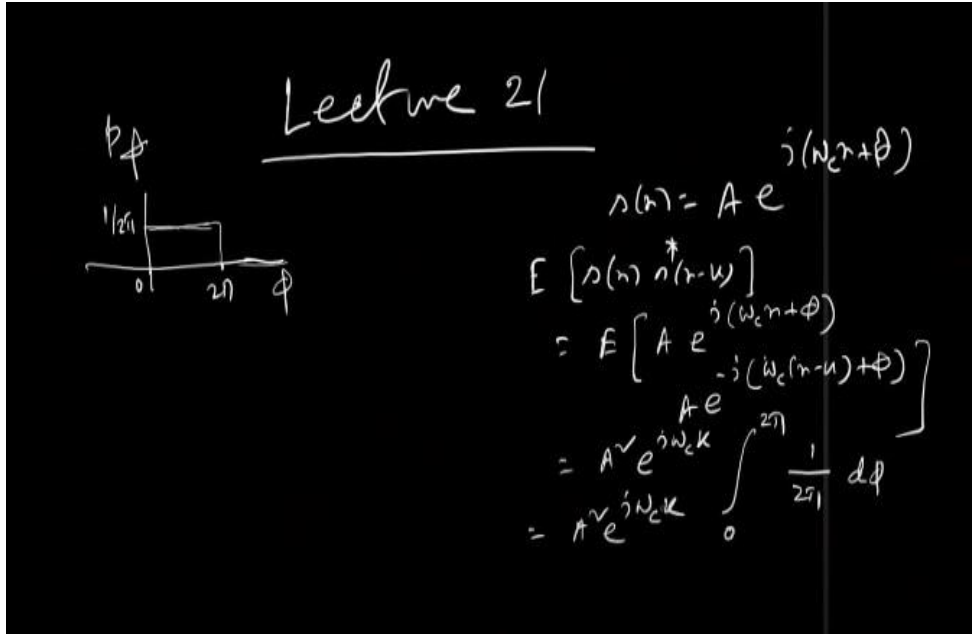 Lecture 21
pϕ
1/2π
0 2π ϕ
s(n) = A e^{j(ω_c n+ϕ)}
E [s(n) s*(n-k)]
= E [A e^{j(ω_c n+ϕ)}
A e^{-j(ω_c(n-k)+ϕ)}]
= A² e^{jω_c k} ∫_0^{2π} 1/2π dϕ
= A² e^{jω_c k}